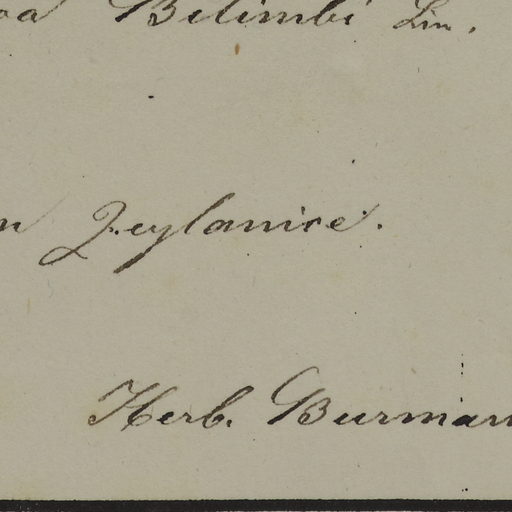 oa Bilimbi Lin.
n Zeylanice.
Herb. Burman